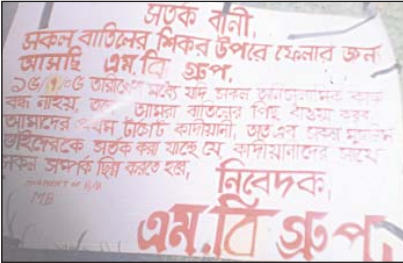 সতর্ক বানী,
সকল বাতিলের শিকর উপরে ফেলার জন্য
আসছি এম.বি গ্রুপ,
১৫/৭/০৫ তারিখের মধ্যে যদি সকল কাজ
বন্ধ নাহয়, তবে আমরা বাতিলের পিছু ধাওয়া করব,
আমাদের প্রথম টার্গেট কাদিয়ানী, অতএব সকল মুসলিম
ভাইদেরকে সতর্ক করা যাচ্ছে যে কাদিয়ানীদের সাথে
সকল সম্পর্ক ছিন্ন করতে হবে,
নিবেদক,
MB
এম.বি গ্রুপ,